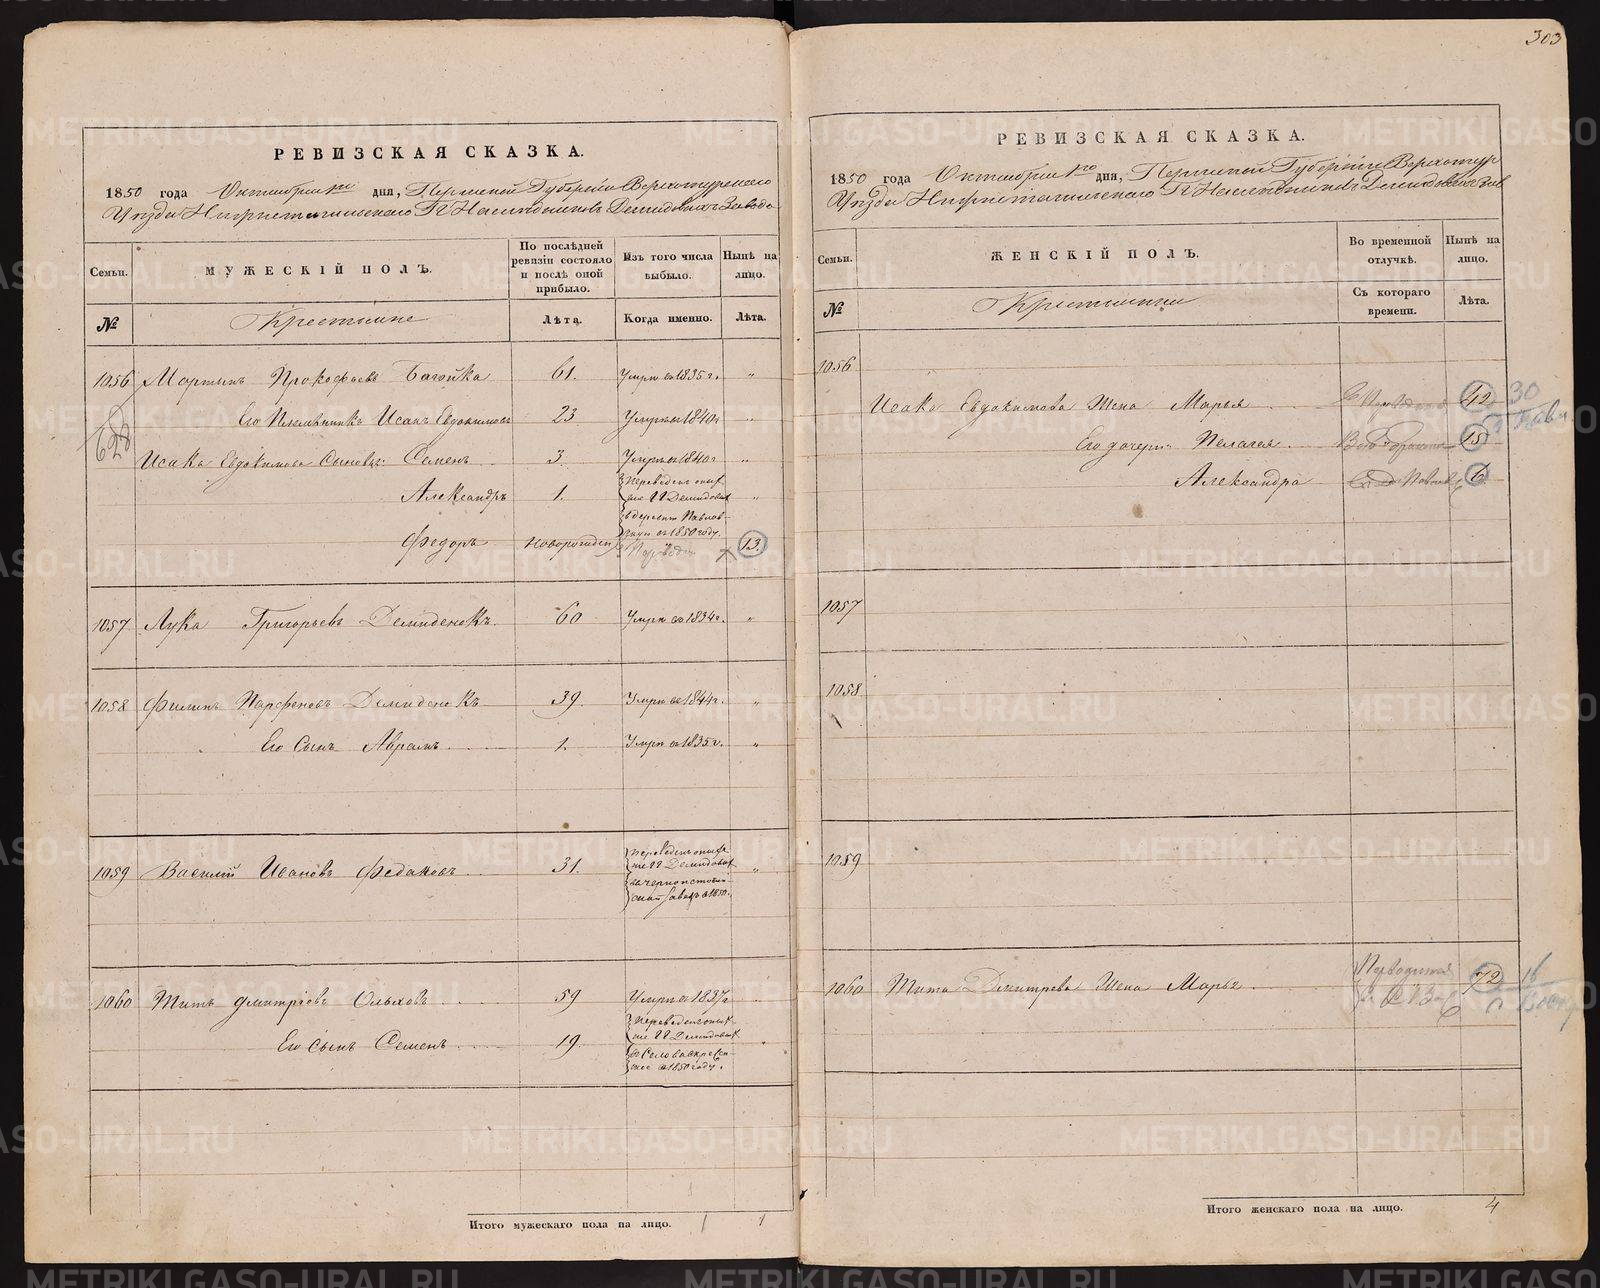 303
РЕВИЗСКАЯ СКАЗКА.
1850 года Октября дня, Пермской Губернiи Верхотурскаго
Уѣзда Нижнетагильскаго Гг Наслѣдниковъ Демидовыхъ Завода
Семьи.
МУЖЕСКІЙ ПОЛЪ.
По послѣдней ревизіи состояло и послѣ оной прибыло.
Изъ того числа выбыло.
Нынѣ на лицо.
№
Крестьяне
Лѣта.
Когда именно.
Лѣта.
1056 Мартынъ Прокофьевъ 61. Умръ въ 1835 г. "
628
Его Племянникъ Исакъ Евдокимовъ 23 Умръ въ 1840 г "
Исака Евдокимова Сыновья: Семенъ 3. Умръ въ 1840 г "
Александръ 1. Переведенъ
Гг Демидовых "
въ деревню Павлов-
въ 1850 году.
Федоръ новорожден 13.
1057 Лука Григорьевъ Демиденокъ. 60 Умръ въ 1834 г. "
1058 Филипъ Парфеновъ Демиденокъ 39. Умръ въ 1844 г. "
Его Сынъ Абрамъ 1. Умръ въ 1835 г. "
1059 Василій Ивановъ Федаковъ 31. Переведенъ
Гг Демидовых "
въ черноисточин-
скій заводъ въ 1850 г.
1060 Титъ Дмитріевъ Ольховъ 59 Умръ въ 1837 г "
Его Сынъ Семенъ 19. Переведенъ
Гг Демидовых "
въ Село воскресен-
ское въ 1850 году.
Итого мужескаго пола на лицо. 1 1
РЕВИЗСКАЯ СКАЗКА.
1850 года Октября дня, Пермской Губерніи Верхотур
Уѣзда Нижнетагильскаго Гг Наслѣдниковъ Демидовыхъ Зав
Семьи.
ЖЕНСКІЙ ПОЛЪ.
Во временной отлучкѣ.
Нынѣ на лицо.
№
Крестьянки
Съ котораго времени.
Лѣта.
1056
Исака Евдокимова Жена Марья 42 30
Его дочери: Пелагея 15
Александра 6
1057
1058
1059
1060 Тита Дмитрева Жена Марья 72 16
Итого женскаго пола на лицо. 4
METRIKI.GASO-URAL.RU